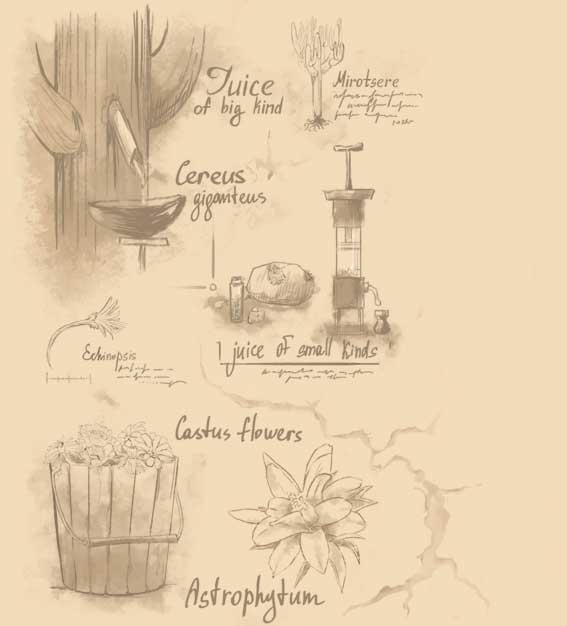 Juice
of big kind
Mirotsere
Cereus
giganteus
Echinopsis
1 juice of small kinds
Castus flowers
Astrophytum